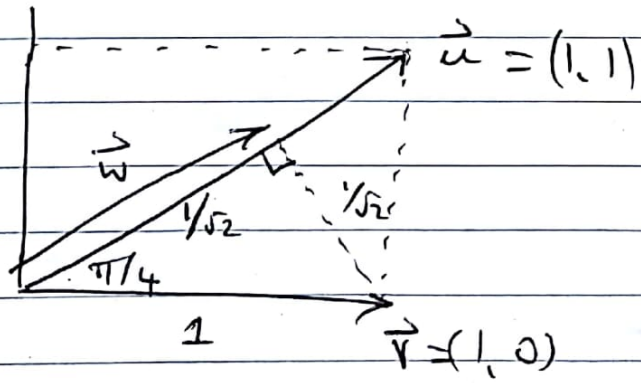 u⃗ = (1, 1)
w⃗
1/√2
1/√2
π/4
1
v⃗ = (1, 0)